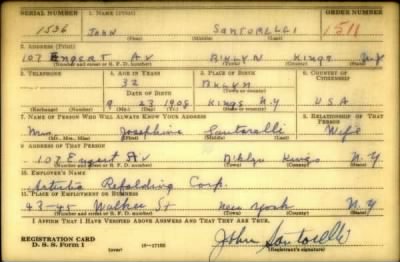 SERIAL NUMBER 1. NAME (Print) ORDER NUMBER
1536 JOHN SANTORELLI 1511
(First) (Middle) (Last)
2. ADDRESS (Print)
107 Engert AV B'KLYN Kings N.Y
(Number and street or R. F. D. number) (Town) (County) (State)
3. TELEPHONE 4. AGE IN YEARS 5. PLACE OF BIRTH 6. COUNTRY OF CITIZENSHIP
32 BKLYN
DATE OF BIRTH (Town or county)
9 23 1908 Kings N.Y U S A
(Exchange) (Number) (Mo.) (Day) (Yr.) (State or country)
7. NAME OF PERSON WHO WILL ALWAYS KNOW YOUR ADDRESS 8. RELATIONSHIP OF THAT PERSON
Mrs. Josephine Santorelli Wife
(Mr., Mrs., Miss) (First) (Middle) (Last)
9. ADDRESS OF THAT PERSON
107 Engert AV B'klyn Kings N.Y
(Number and street or R. F. D. number) (Town) (County) (State)
10. EMPLOYER'S NAME
Artistic Refolding Corp.
11. PLACE OF EMPLOYMENT OR BUSINESS
43-45 Walker St New York N.Y
(Number and street or R. F. D. number) (Town) (County) (State)
I AFFIRM THAT I HAVE VERIFIED ABOVE ANSWERS AND THAT THEY ARE TRUE.
REGISTRATION CARD
D. S. S. Form 1 (over) 16—17105
John Santorelli
(Registrant's signature)